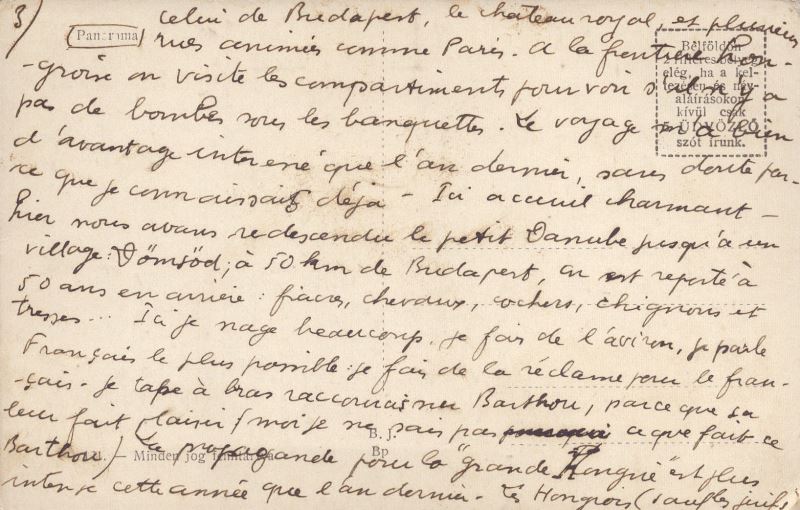 3)
celui de Budapest, le château royal, et plusieurs
Panoroma
rues animées comme Paris. A la frontière hon-
-groise on visite les compartiments pour voir s'il n'y a
pas de bombes sous les banquettes. Le voyage m'a bien
d'avantage interessé que l'an dernier, sans doute par-
ce que je connaissais déjà - Ici accueil charmant -
hier nous avons redescendu le petit Danube jusqu'à un
village: Dömsöd; à 50 km de Budapest, on est reporté à
50 ans en arrière: fiacres, chevaux, cochers, chignons et
tresses... Ici je nage beaucoup, je fais de l'aviron, je parle
Français le plus possible: je fais de la réclame pour le fran-
-çais. Je tape à bras raccourcis sur Barthou, parce que ça
leur fait plaisir (moi je ne sais pas ce que fait ce
Barthou) la propagande pour la "grande Hongrie" est plus
intense cette année que l'an dernier - Les Hongrois (sauf les juifs
Belföldön
elég, ha a kel-
tezésen és név-
aláírásokon
kívül csak
5 ÜDVÖZLŐ
szót írunk.
B. J.
Bp
— Minden jog fenntartva